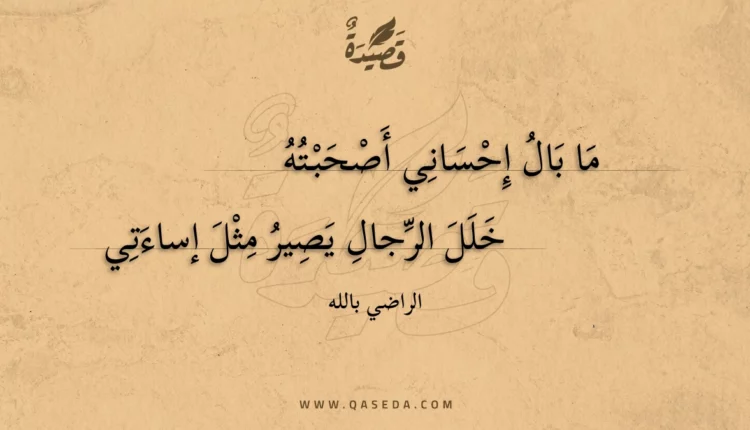 قَصِيْدَةٌ
مَا بَالُ إِحْسَانِي أَصْحَبْتُهُ
خَلَلَ الرِّجالِ يَصِيرُ مِثْلَ إساءَتِي
الراضي بالله
WWW.QASEDA.COM